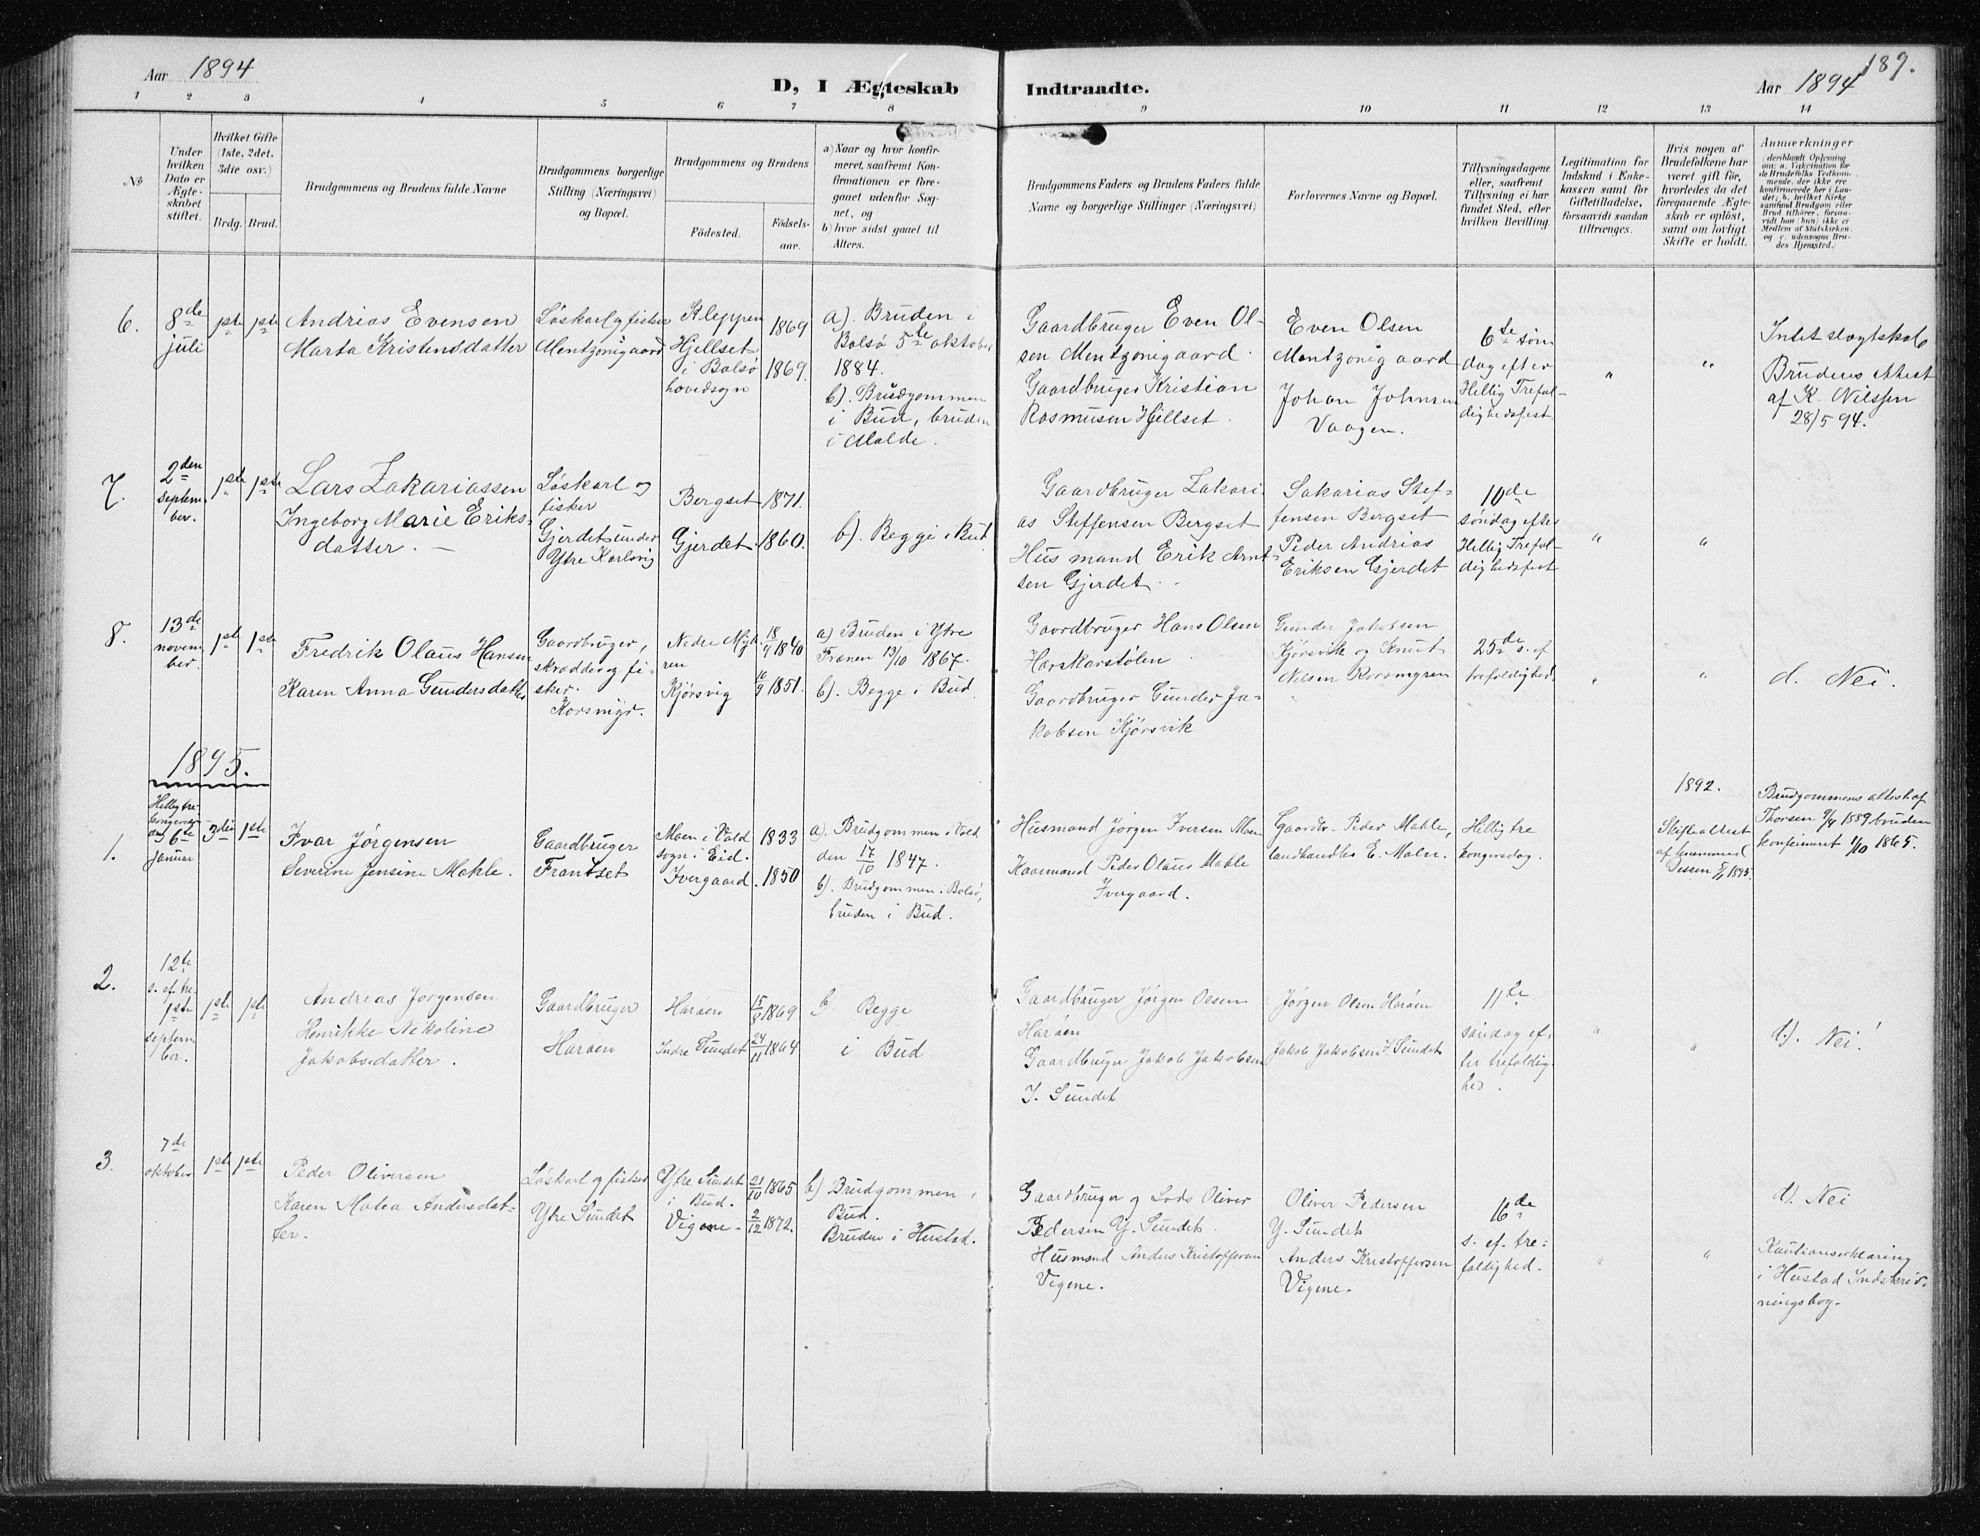 Aar 1894
D, I Ægteskab Indtraadte.
Aar 1894
189.
1 2 3 4 5 6 7 8 9 10 11 12 13 14
No
Under
hvilken
Dato er
Ægte-
skabet
stiftet.
Hvilket Gifte
(1ste, 2det,
3die osv.)
Brdg. Brud.
Brudgommens og Brudens fulde Navne
Brudgommens borgerlige
Stilling (Næringsvei)
og Bopæl.
Brudgommens og Brudens
Fødested.
Fødsels-
aar.
a) Naar og hvor konfir-
meret, saafremt Kon-
firmationen er fore-
gaaet udenfor Sog-
net, og
b) hvor sidst gaaet til
Alters.
Brudgommens Faders og Brudens Faders fulde
Navne og borgerlige Stillinger (Næringsvei)
Forlovernes Navne og Bopæl.
Tillysningsdagene
eller, saafremt
Tillysning ei har
fundet Sted, efter
hvilken Bevilling.
Legitimation for
Indskud i Enke-
kassen samt for
Giftetilladelse,
forsaavidt saadan
tiltrænges.
Hvis nogen af
Brudefolkene har
været gift før,
hvorledes da det
foregaaende Ægte-
skab er opløst,
samt om lovligt
Skifte er holdt.
Anmærkninger
6.
8de
juli
1ste 1ste
Andrias Evensen
Marta Kristensdatter
Løskarl og fisker
Mentzonigaard
Kleppen
Hjellset
i Bolsø
hovedsogn
1869
1869.
a). Bruden i
Bolsø 5te oktober
1884.
b). Brudgommen
i Bud, bruden
i Molde.
Gaardbruger Even Ol-
sen Mentzonigaard.
Gaardbruger Kristian
Rasmusen Hjellset.
Even Olsen
Mentzonigaard
Johan Johnsen
Vaagen.
6te søn
dag efter
Hellig Trefol-
dighedsfest
" "
Intet slægtskab
Brudens attest
af K. Nilssen
28/5 94.
7.
2den
Septem-
ber.
1ste 1ste
Lars Zakariassen
Ingeborg Marie Eriks-
datter. —
Løskarl og
fisker
Gjerdet under
Ytre Karlsvig
Bergset
Gjerdet
1871.
1860.
b). Begge i Bud
Gaardbruger Zakari-
as Steffensen Bergset
Husmand Erik Arnt-
sen Gjerdet.
Sakarias Stef-
fensen Bergset
Peder Andrias
Eriksen Gjerdet
10de
søndag efter
Hellig Trefol-
dighedsfest
" "
8.
13de
novem
ber.
1ste 1ste
Fredrik Olaus Hansen
Karen Anna Gundersdatter
Gaardbruger,
skrædder og fi-
sker.
Korsmyr.
Nedre Myk-
ren
Kjørsvig
18/4 1840
16/9 1851.
a) Bruden i Ytre
Frænen 13/10 1867.
b). Begge i Bud
Gaardbruger Hans Olsen
Harskarstølen
Gaardbruger Gunder Ja-
kobsen Kjørsvik
Gunder Jakobsen
Kjørsvik og Knut
Nilsen Korsmyren
25de s. ef
trefoldighed.
" "
d. Nei.
1895.
1.
Hellig tre-
kongersdag
den 6te
januar
3die 1ste
Ivar Jørgensen
Severine Jensine Mahle.
Gaardbruger
Frantset
Moen i Vold
sogn i Eid.
Ivergaard.
1833
1850
a). Brudgommen i Vold
den 17/10 1847.
b). Brudgommen i Bolsø,
bruden i Bud.
Husmand Jørgen Iversen Moen
Kaarmand Peder Olaus Mahle
Ivergaard.
Gaardbr. Peder Mahle,
landhandler E. Malm.
Hellig tre
kongersdag.
1892.
Skifteattest
af lensmand
1895.
Brudgommens attest af
Thorsen 1889 bruden
konfirmeret 1/10 1865.
2.
12te
s. ef. tre.
1ste
septem
ber.
1ste 1ste
Andreas Jørgensen
Henrikke Nekoline
Jakobsdatter.
Gaardbruger
Harøen
Harøen
Indre Sundet
15/8 1869
24/11 1864
b. Begge
i Bud
Gaardbruger Jørgen Olsen
Harøen
Gaardbruger Jakob Jakobsen
I. Sundet
Jørgen Olsen Harøen
Jakob Jakobsen I. Sundet
11te
søndag ef-
ter trefoldig-
hed.
" "
d). Nei!
3.
7de
oktober
1ste 1ste
Peder Oliversen
Karen Malea Andersdat-
ter.
Løskarl og fisker
Ytre Sundet
Ytre Sundet
i Bud.
Vigene.
21/10 1865
2/12 1872.
b) Brudgommen i
Bud.
Bruden i Hustad.
Gaardbruger og Lods Oliver
Pedersen Y. Sundet.
Husmand Anders Kristoffersen
Vigene.
Oliver Pedersen
Y. Sundet
Anders Kristoffersen
Vigene.
16de
s. ef. tre-
foldighed.
" "
d). Nei
Kautionserklæring
i Hustad Indskriv-
ningsbog.